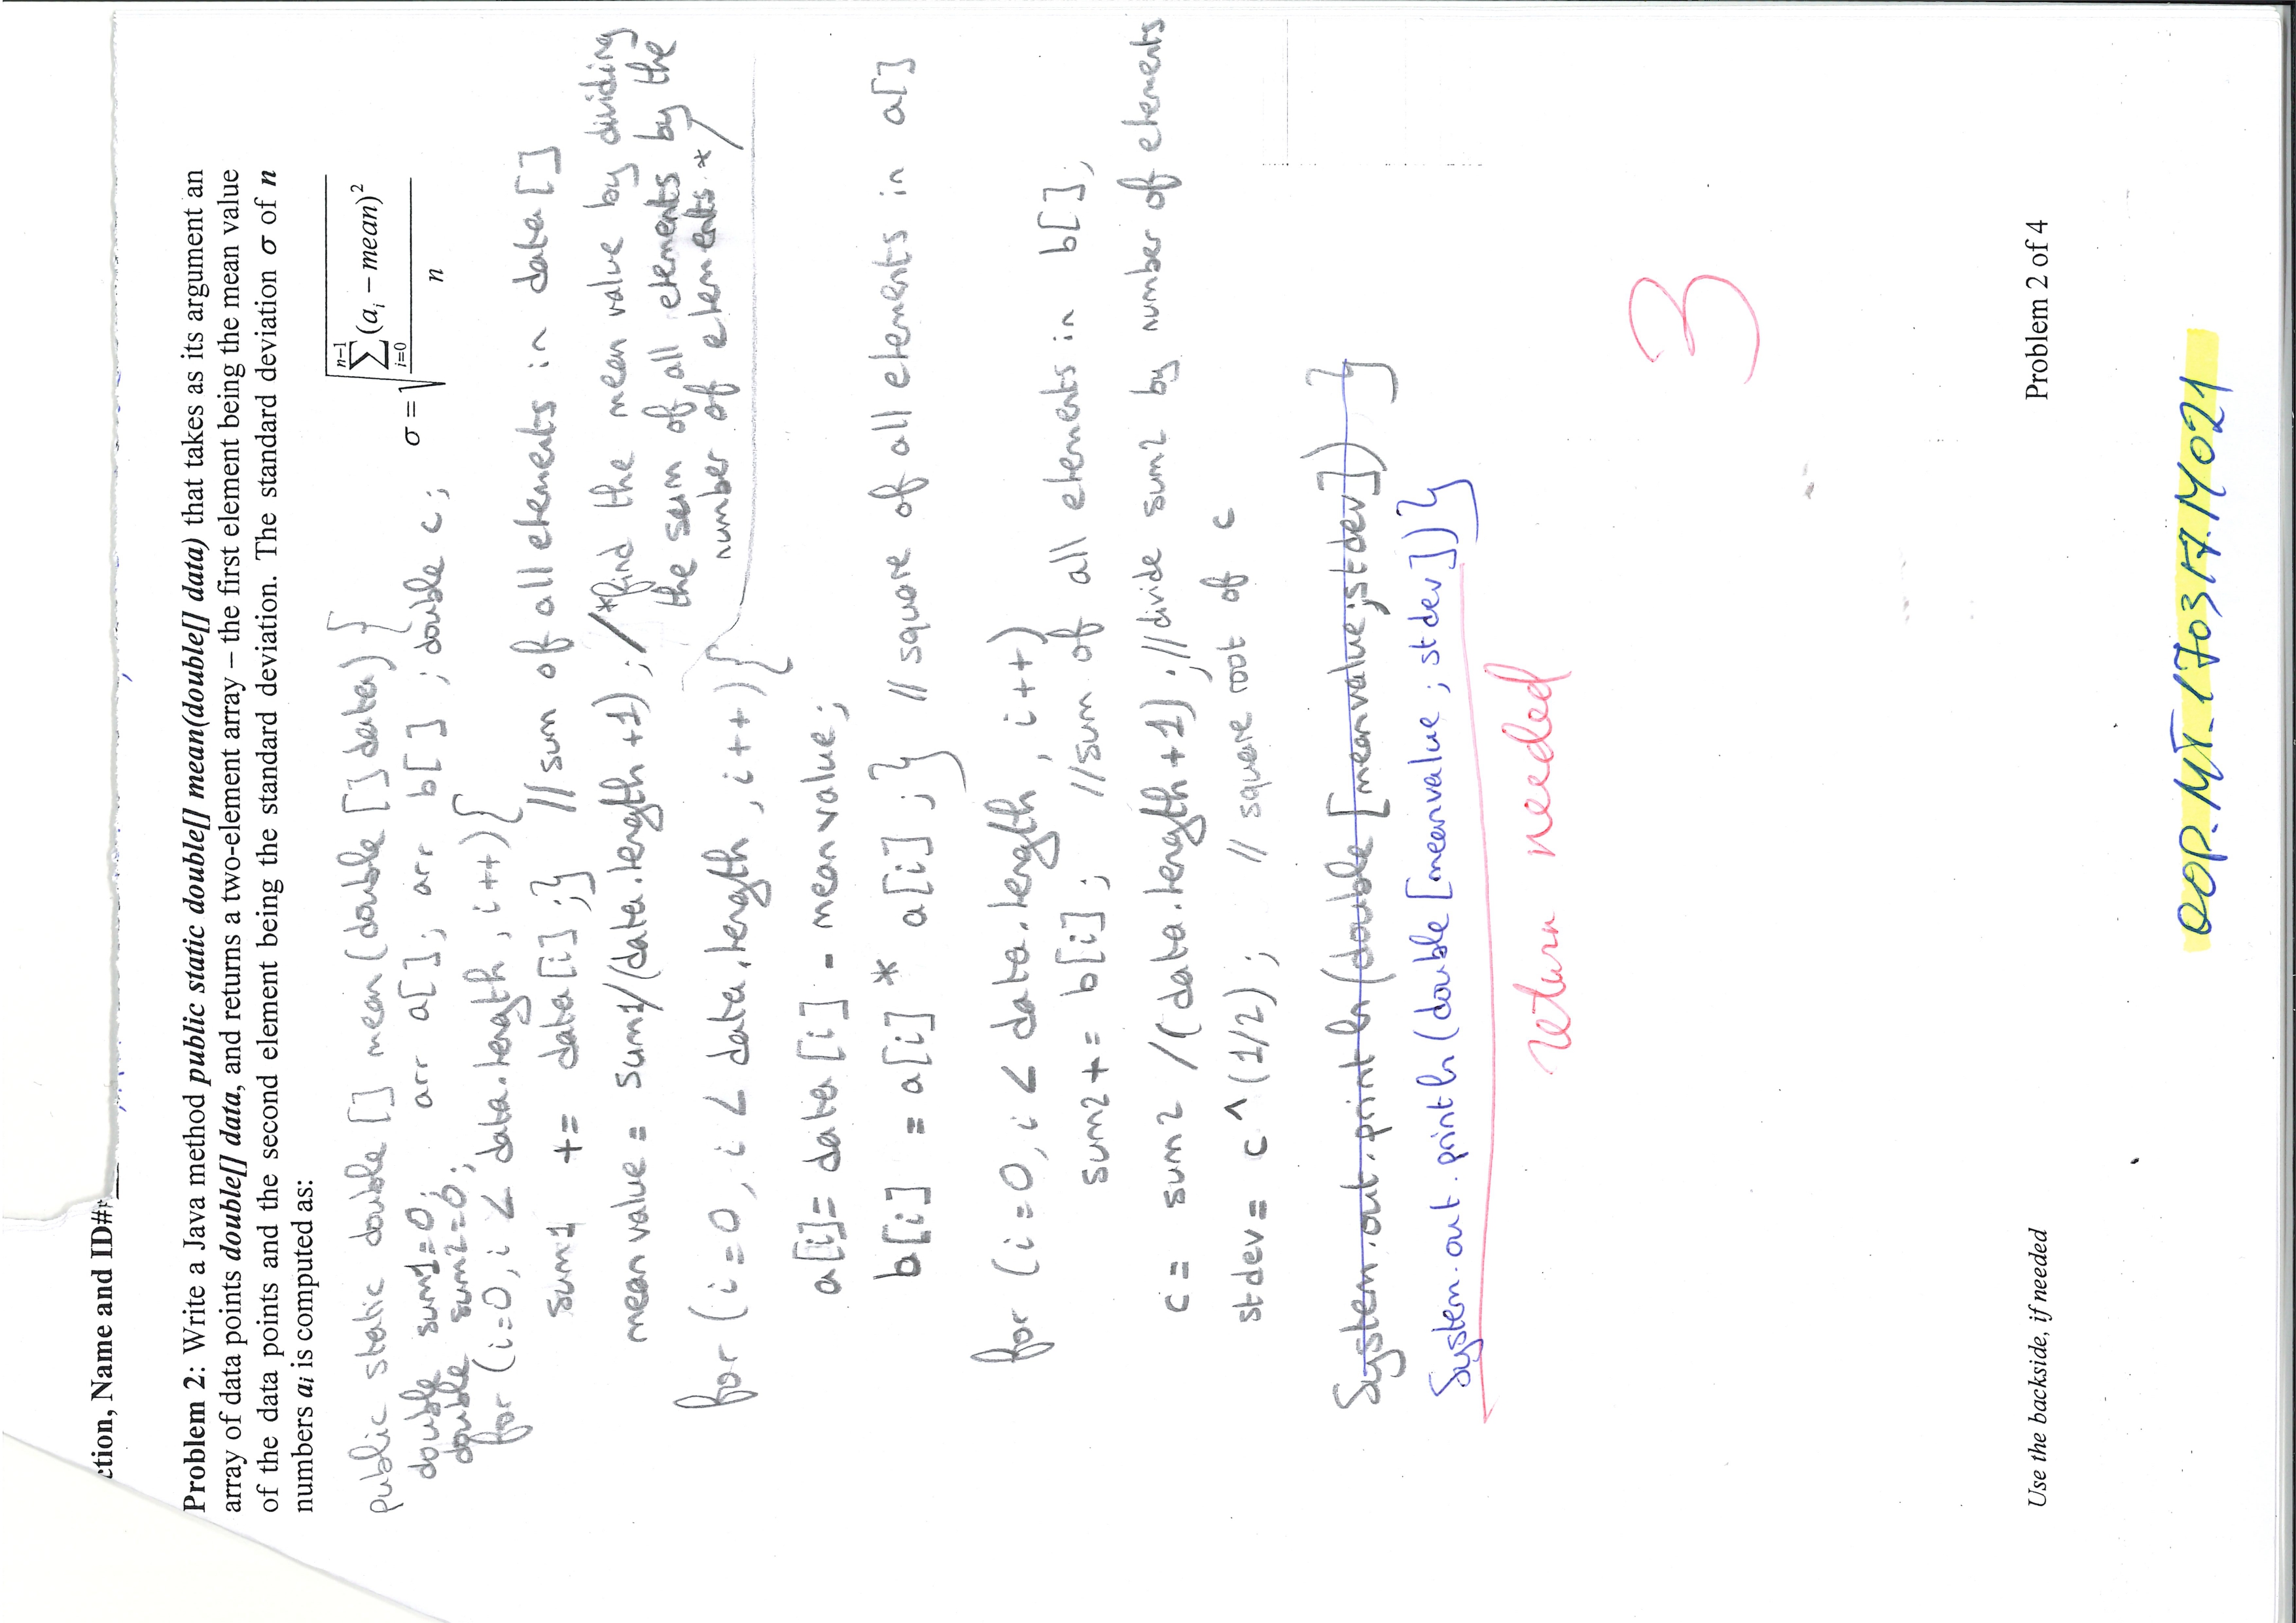 ction, Name and ID#
Problem 2: Write a Java method public static double[] mean(double[] data) that takes as its argument an
array of data points double[] data, and returns a two-element array – the first element being the mean value
of the data points and the second element being the standard deviation. The standard deviation σ of n
numbers ai is computed as:
σ = √( ∑_{i=0}^{n−1} (a_i − mean)² / n )
public static double [] mean (double [] data) {
double sum1=0; arr a[]; arr b[] ; double c ;
double sum2=0;
for (i=0, i < data.length , i++){
sum1 += data[i] ;} // sum of all elements in data []
mean value = sum1/(data.length +1) ; /*find the mean value by dividing
the sum of all elements by the
number of elements */
for (i=0, i < data.length , i++){
a[i]= data [i] - meanvalue;
b[i] = a[i] * a[i] ; } // square of all elements in a[]
for (i=0, i < data.length , i++)
sum2 += b[i] ; //sum of all elements in b[];
c = sum2 /(data.length +1) ; //divide sum2 by number of elements
stdev = c ^(1/2) ; // square root of c
System.out.println (double [meanvalue;stdev]) }
System.out.println (double [meanvalue ; stdev])}
return needed
3
Use the backside, if needed
Problem 2 of 4
OOP.MT.170317.M021